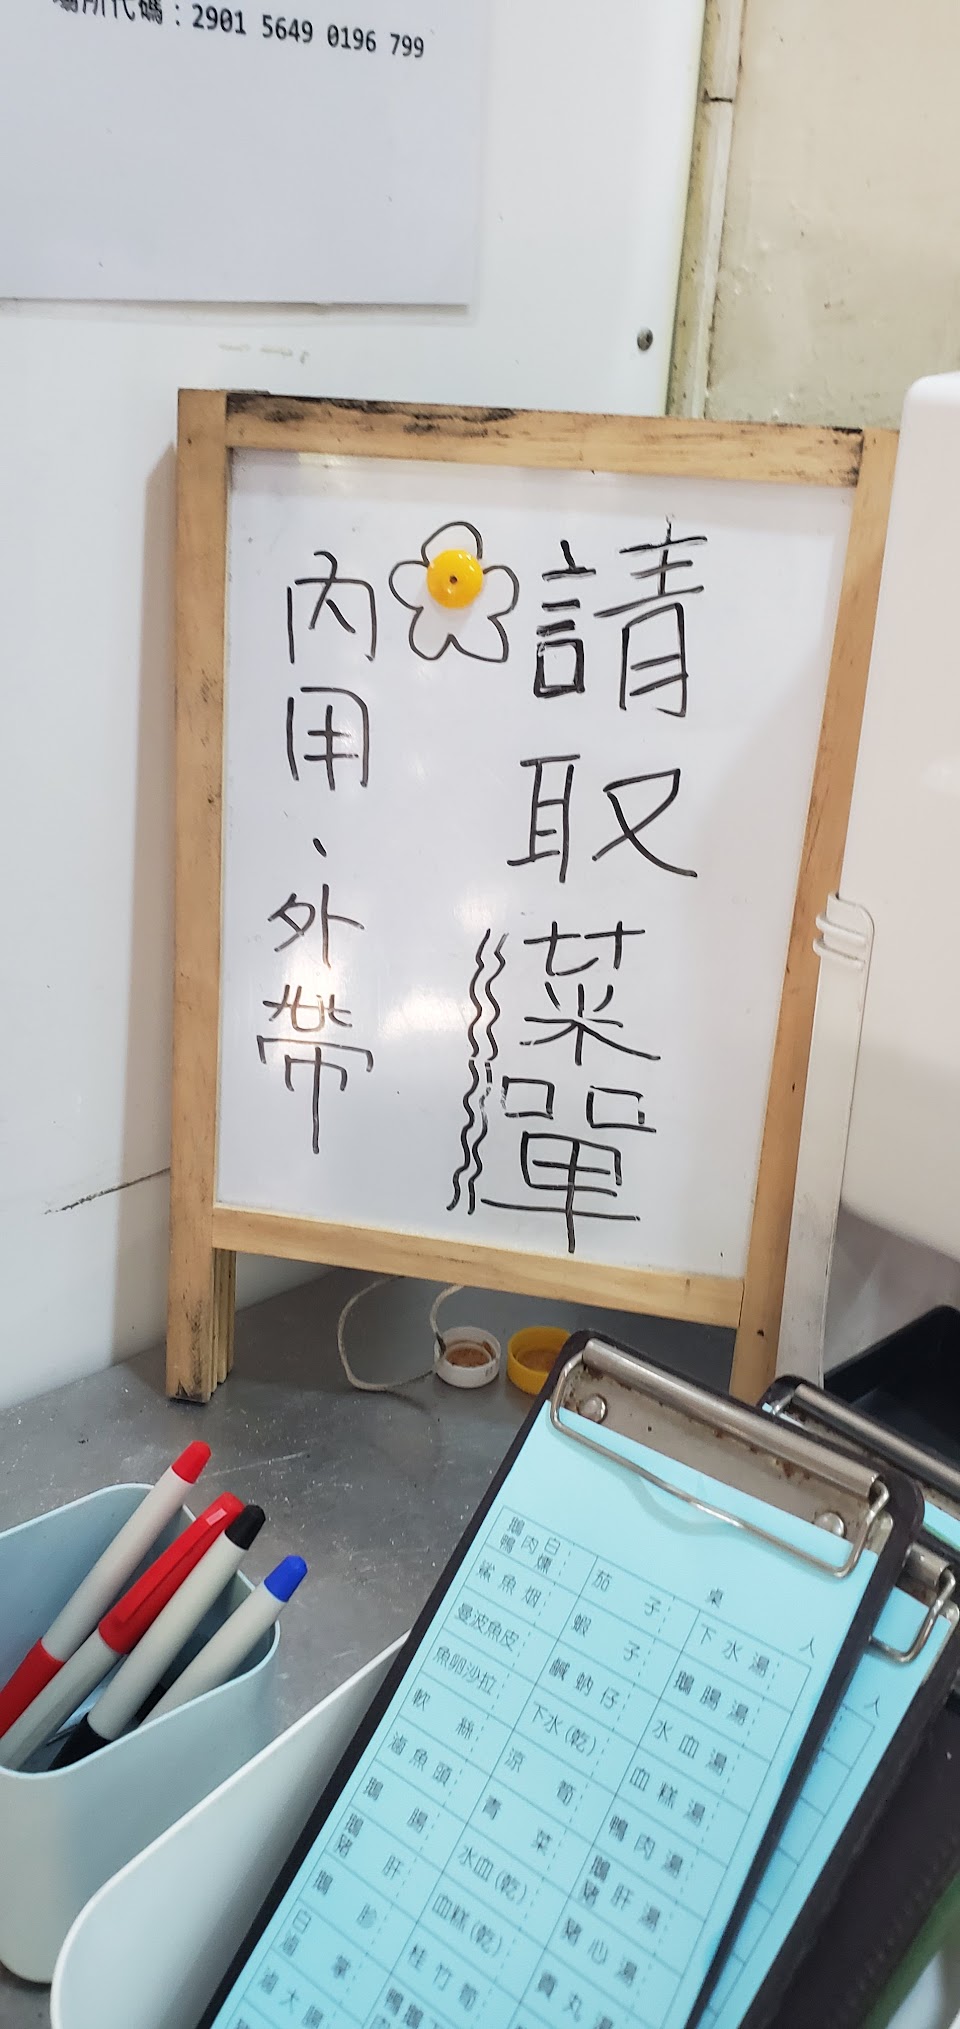 場所代碼：2901 5649 0196 799
請取菜單
內用、外帶
桌 人
鵝鴨肉白燻 茄子 下水湯
鯊魚烟 蝦子 鵝腸湯
曼波魚皮 鹹蚋仔 水血湯
魚卵沙拉 下水(乾) 血糕湯
軟絲 涼筍 鴨肉湯
滷魚頭 青菜 鵝豬肝湯
鵝腸 水血(乾) 豬心湯
鵝豬肝 血糕(乾) 貢丸湯
鵝胗 桂竹筍
白滷掌
滷大腸
人